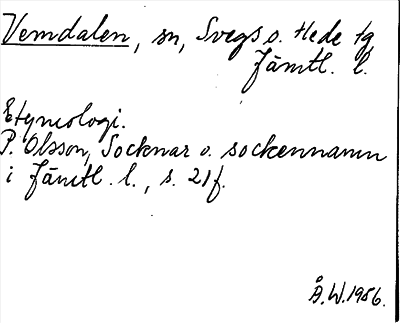 Vemdalen, sn, Svegs o. Hede tg
Jämtl. l.
Etymologi.
P. Olsson, Socknar o. sockennamn
i Jämtl. l., s. 21f.
Å.W.1956.